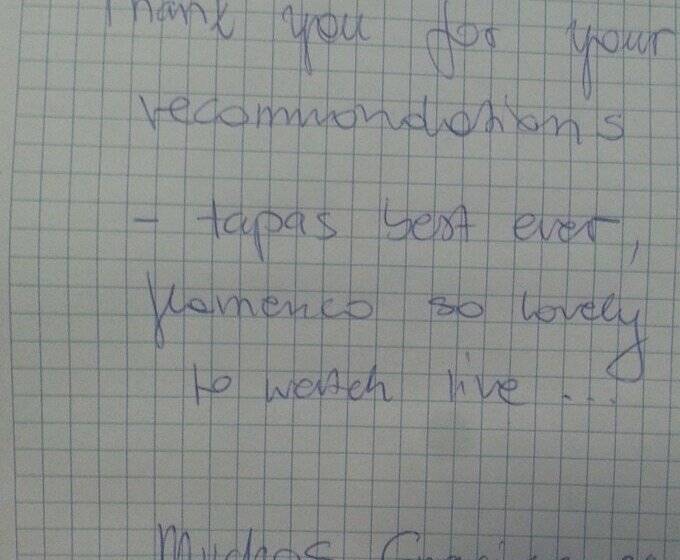 Thank you for your
recommondations
- tapas best ever,
flamenco so lovely
to watch live ...
Muchas